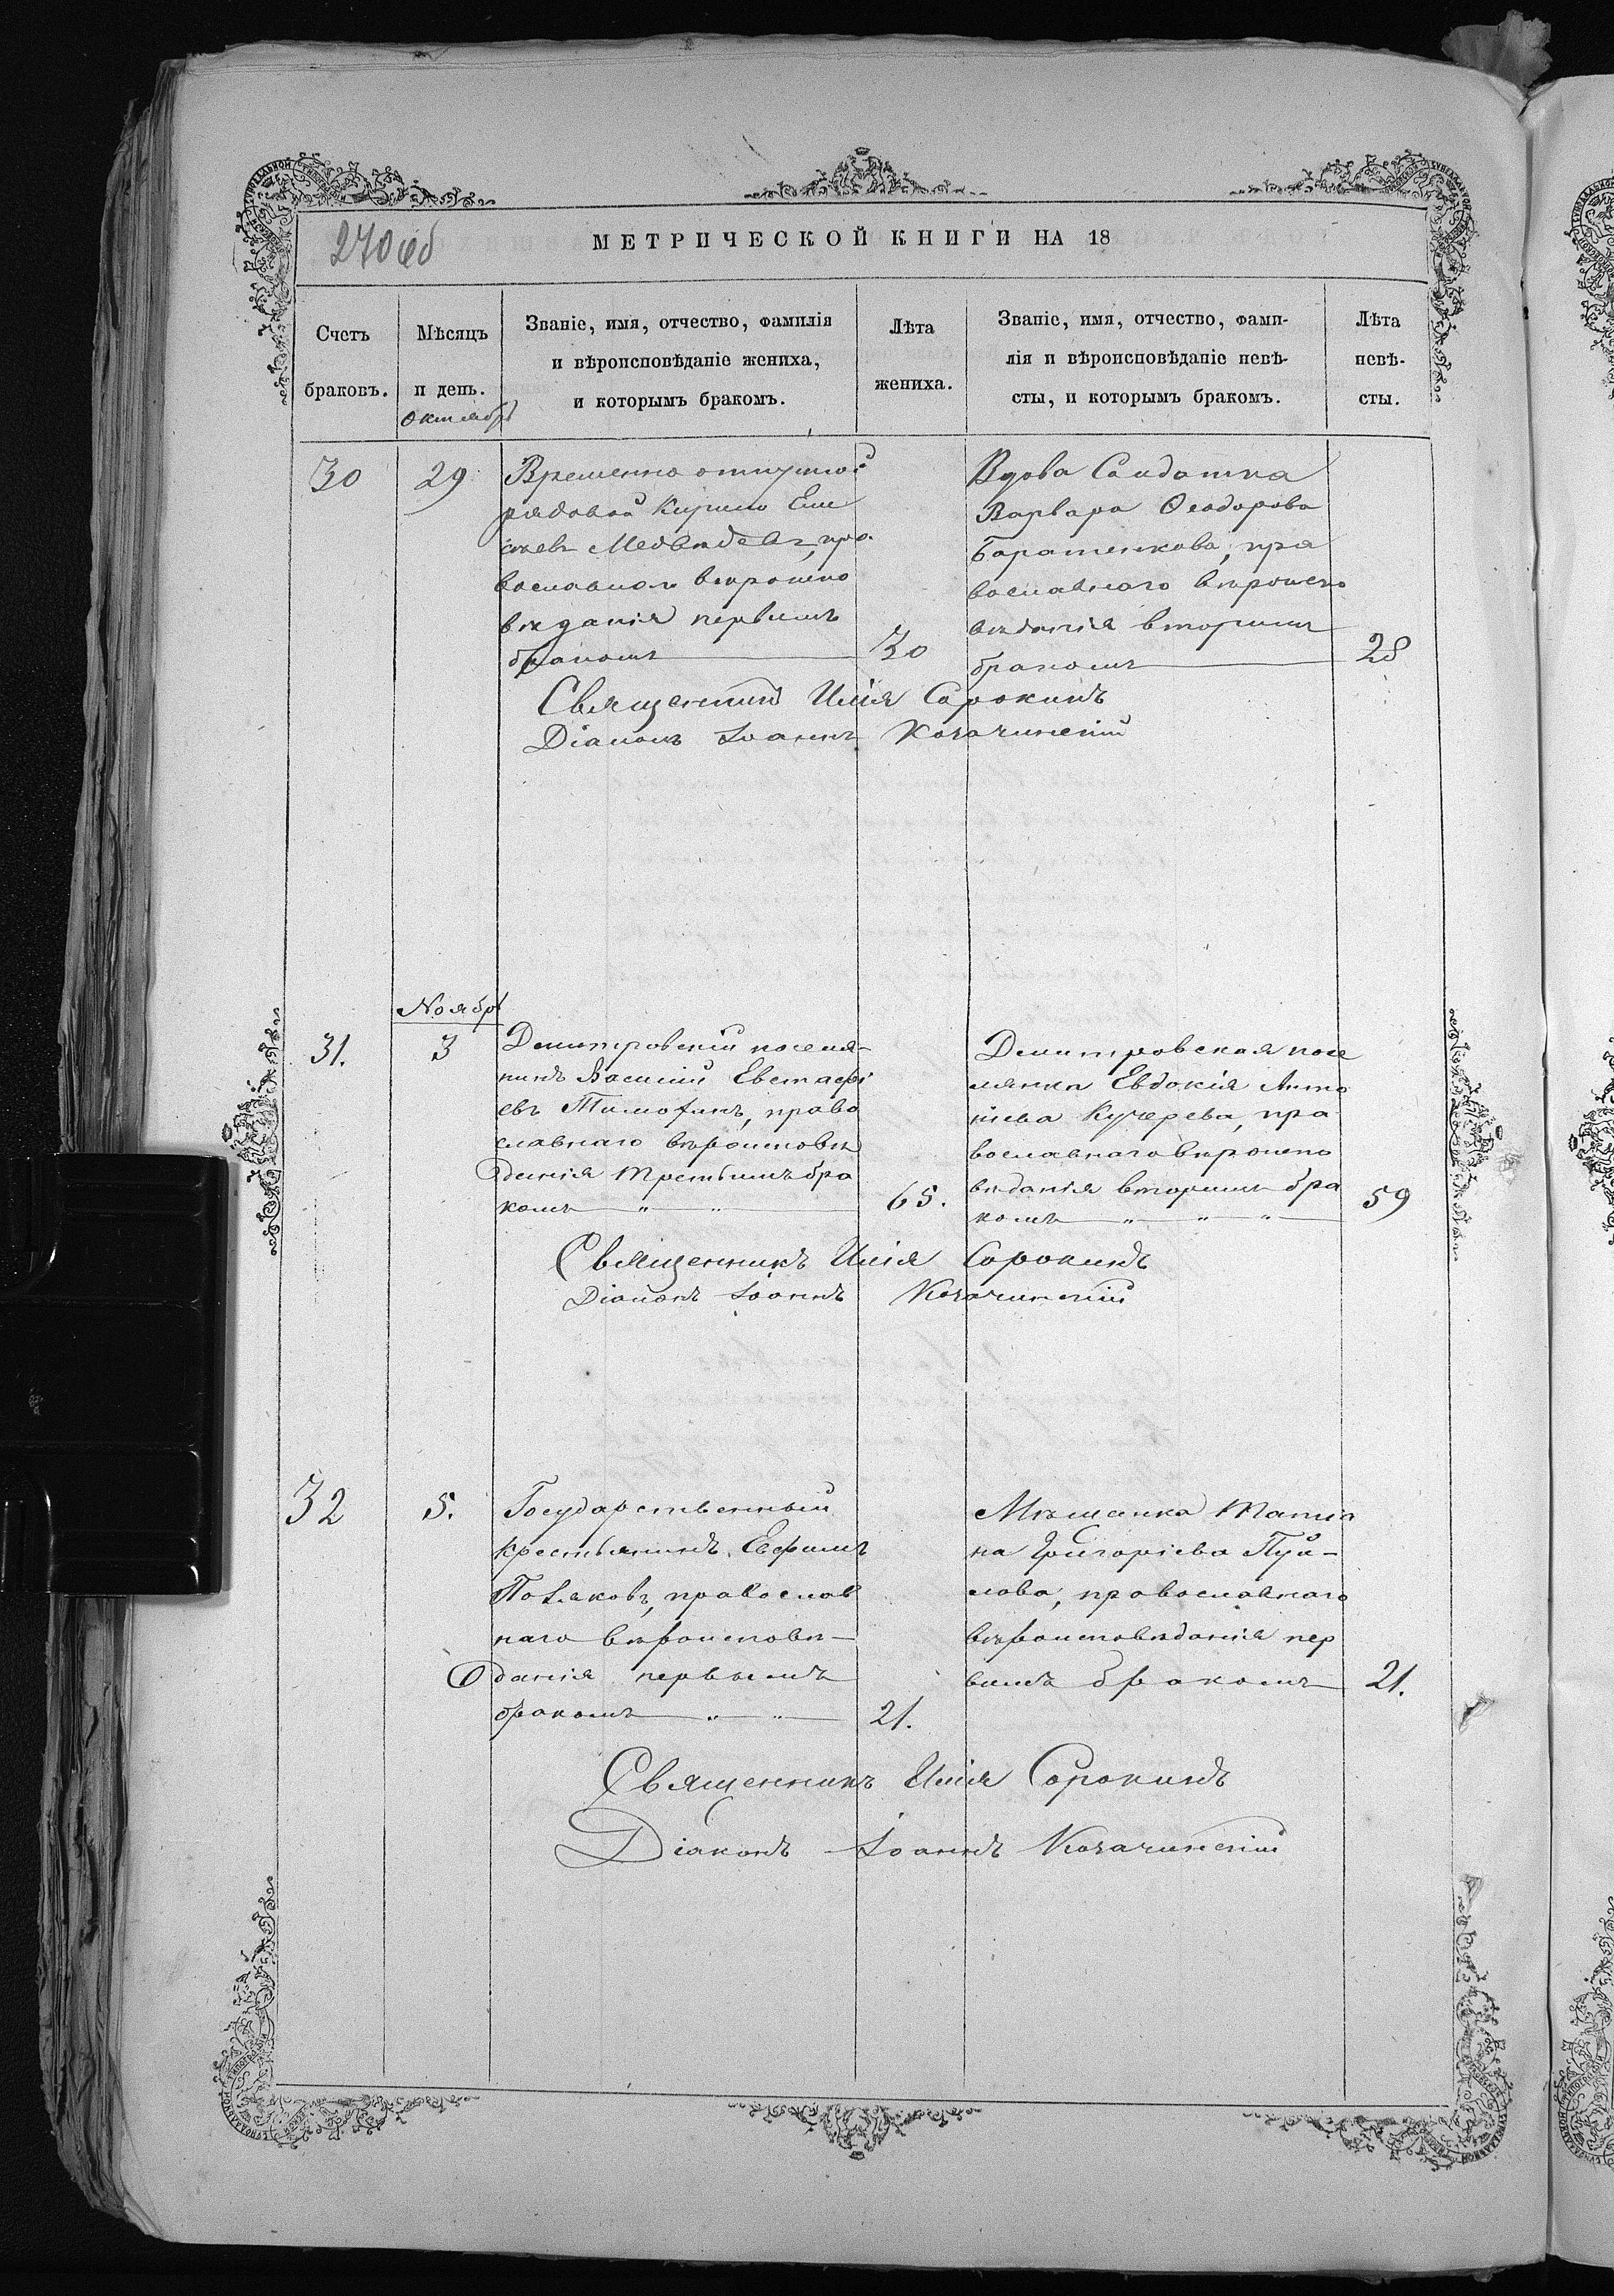 270 об
МЕТРИЧЕСКОЙ КНИГИ НА 18
Счетъ браковъ.
Мѣсяцъ и день.
Званіе, имя, отчество, фамилія
и вѣроисповѣданіе жениха,
и которымъ бракомъ.
Лѣта жениха.
Званіе, имя, отчество, фами-
лія и вѣроисповѣданіе невѣ-
сты, и которымъ бракомъ.
Лѣта невѣ-
сты.
Октябрь
30
29
Временно отпускной
рядовой Кирило Ели
сѣевъ Медвѣдевъ, пра
вославнаго вѣроиспо
вѣданія первымъ
бракомъ
30
Вдова Солдатка
Варвара Ѳеодорова
пра
вославнаго вѣроиспо
вѣданія вторымъ
бракомъ
28
Священникъ Илія Сорокинъ
Діаконъ Іоаннъ Козачинскій
Ноябрь
31.
3
Дмитровскій поселя-
нинъ Василій Евстафі
евъ Тимофинъ, право
славнаго вѣроисповѣ
данія третьимъ бра
комъ " "
65.
Дмитровская посе
лянка Евдокія Анто
нієва Кучерева, пра
вославнаго вѣроиспо
вѣданія вторымъ бра
комъ " " "
59
Священникъ Илія Сорокинъ
Діаконъ Іоаннъ Козачинскій
32
5.
Государственный
крестьянинъ Евфимъ
Поляковъ, православ
наго вѣроисповѣ-
данія первымъ
бракомъ " "
21.
Мѣщанка Матія
на Григоріева
лова, православнаго
вѣроисповѣданія пер
вымъ бракомъ
21.
Священникъ Илія Сорокинъ
Діаконъ Іоаннъ Козачинскій